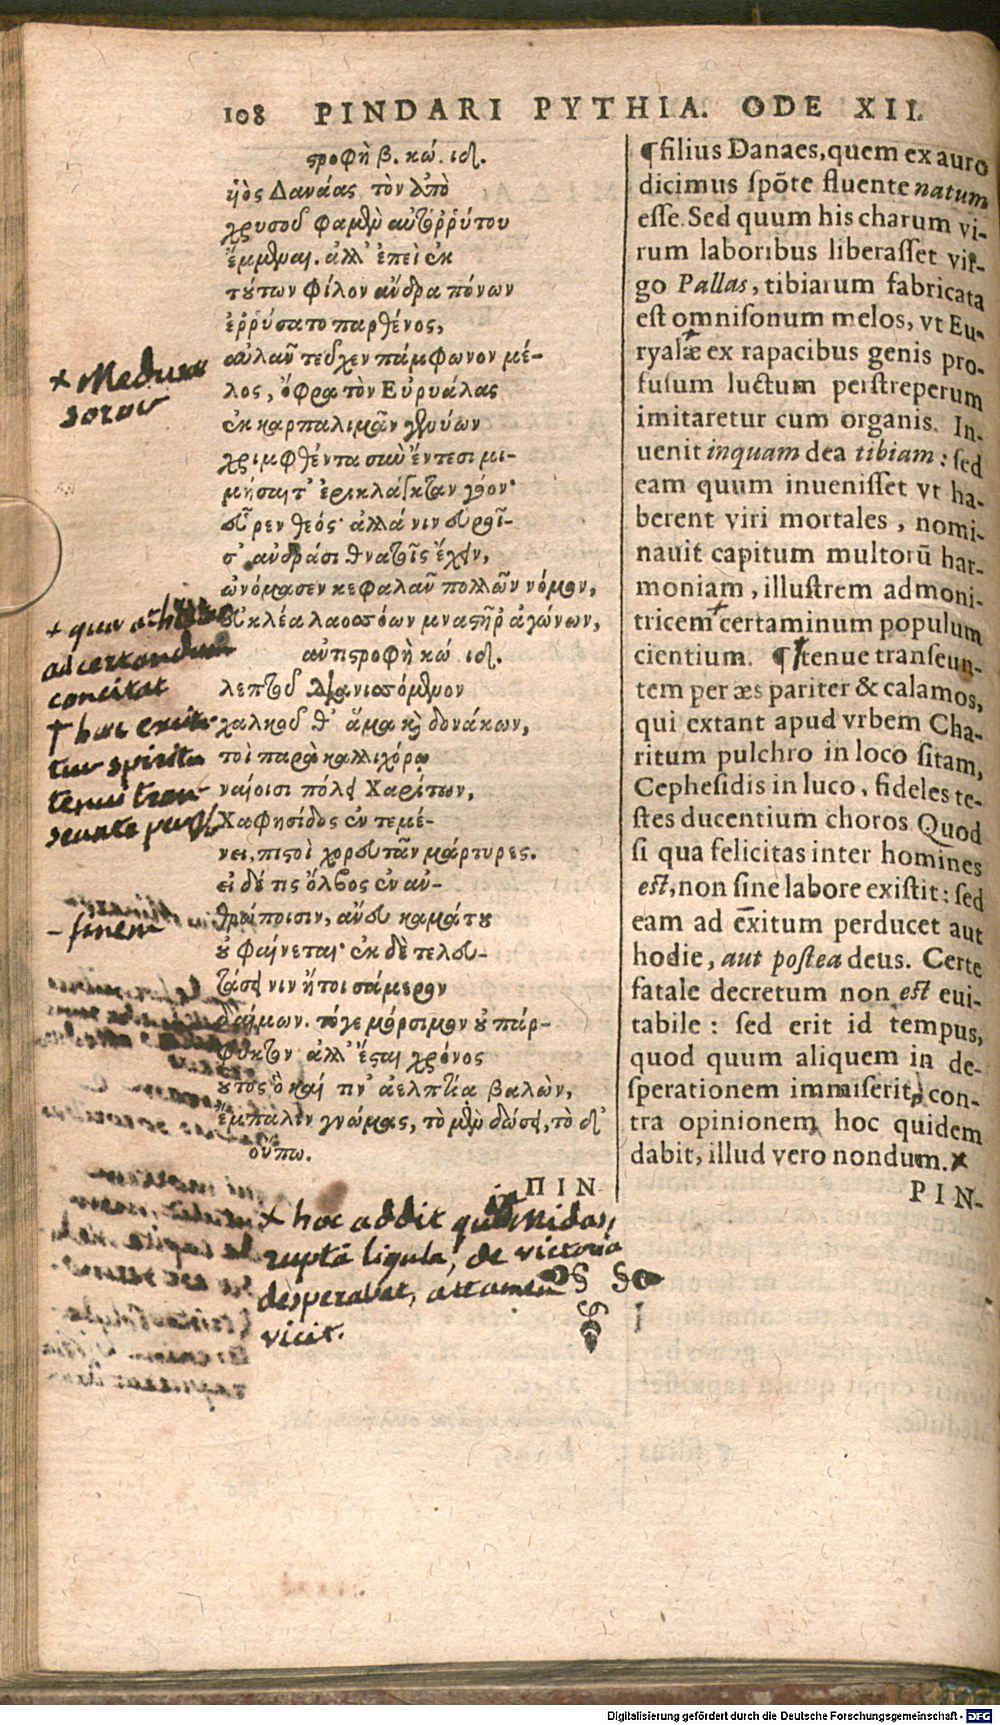 108 PINDARI PYTHIA. ODE XII.
στροφὴ β. κώ. ιδ.
ἡὸς Δανάας τὸν ἀπὸ
χρυσοῦ φαμὲν αὐτοῤῥύτου
ἔμμεναι. ἀλλ' ἐπεὶ ἐκ
τούτων φίλον ἄνδρα πόνων
ἐῤῥύσατο παρθένος,
αὐλῶν τεῦχεν πάμφωνον μέ-
λος, ὄφρα τὸν Εὐρυάλας
ἐκ καρπαλιμᾶν γενύων
χριμφθέντα σὺν ἔντεσι μι-
μήσαιτ' ἐρικλάγκταν γόον·
εὗρεν θεός· ἀλλά νιν εὑροῖ-
σ' ἀνδράσι θνατοῖς ἔχειν,
ὠνόμασεν κεφαλᾶν πολλᾶν νόμον,
εὐκλέα λαοσσόων μναστῆρ' ἀγώνων,
ἀντιστροφὴ κώ ιδ.
λεπτοῦ διανισσόμενον
χαλκοῦ θ' ἅμα καὶ δονάκων,
τοὶ παρὰ καλλιχόρῳ
ναίοισι πόλει Χαρίτων,
Καφησίδος ἐν τεμέ-
νει, πιστοὶ χορευτᾶν μάρτυρες.
εἰ δέ τις ὄλβος ἐν ἀν-
θρώποισιν, ἄνευ καμάτου
οὐ φαίνεται· ἐκ δὲ τελευ-
τάσει νιν ἤτοι σάμερον
δαίμων. τό γε μόρσιμον οὐ πάρ-
φυκτον· ἀλλ' ἔσται χρόνος
οὗτος ὃ καί τιν' ἀελπτίᾳ βαλὼν,
ἔμπαλιν γνώμας, τὸ μὲν δώσει, τὸ δ'
οὔπω.
ΠΙΝ
¶ filius Danaes, quem ex auro
dicimus spõte fluente natum
esse. Sed quum his charum vi-
rum laboribus liberasset vir-
go Pallas, tibiarum fabricata
est omnisonum melos, vt Eu-
ryalæ ex rapacibus genis pro-
fusum luctum perstreperum
imitaretur cum organis. In-
uenit inquam dea tibiam: sed
eam quum inuenisset vt ha-
berent viri mortales, nomi-
nauit capitum multorũ har-
moniam, illustrem admoni-
tricem certaminum populum
cientium. ¶ tenue transeun-
tem per æs pariter & calamos,
qui extant apud vrbem Cha-
ritum pulchro in loco sitam,
Cephesidis in luco, fideles te-
stes ducentium choros. Quod
si qua felicitas inter homines
est, non sine labore existit: sed
eam ad exitum perducet aut
hodie, aut postea deus. Certe
fatale decretum non est eui-
tabile: sed erit id tempus,
quod quum aliquem in de-
sperationem immiserit, con-
tra opinionem hoc quidem
dabit, illud vero nondum.
PIN-
+ Medusae
soror
+ quae
ad certandum
concitat
† haec
tur spiritu
tenui tran-
seunte
- finem
+ hoc addit Midas,
ruptâ ligula, de victoria
desperabat, attamen
vicit.
Digitalisierung gefördert durch die Deutsche Forschungsgemeinschaft - DFG